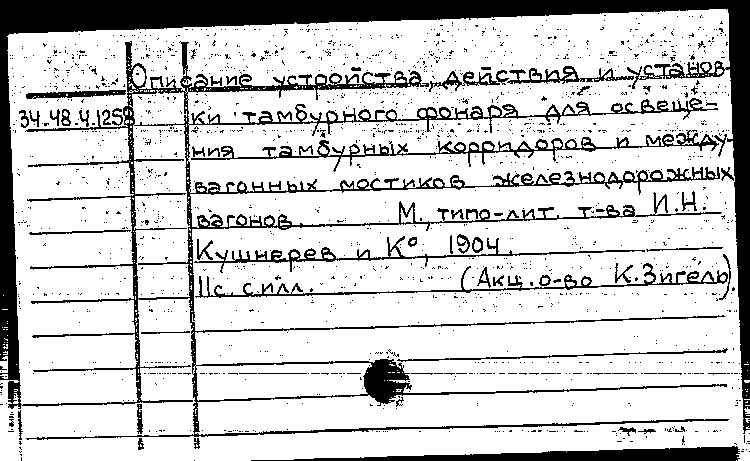 Описание устройства, действия и установ-
34-48.4.1258. ки тамбурного фонаря для освеще-
ния тамбурных корридоров и между-
вагонных мостиков железнодорожных
вагонов. М., типо-лит. т-ва И.Н.
Кушнерев и К°, 1904.
11с. с илл. (Акц. о-во К. Зигель).